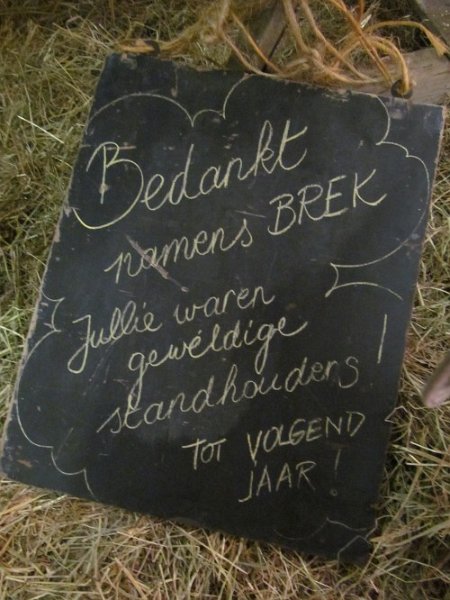 Bedankt
namens BREK
Jullie waren
geweldige
standhouders!
TOT VOLGEND
JAAR!